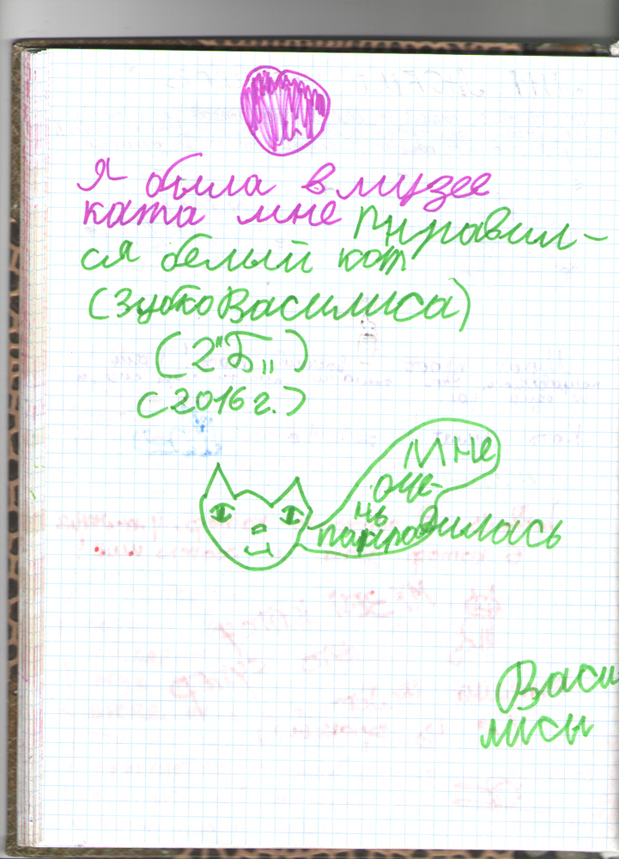 Я была в музее
ката мне пнравил-
ся белый кот
(Зубко Василиса)
(2"Б")
(2016 г.)
Мне
оче-
нь
понравилась
Васи
лисы